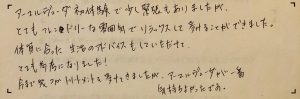 アーユルヴェーダ初体験で少し緊張もありましたが、
とてもフレンドリーな雰囲気でリラックスして参ることができました。
体質に合った生活のアドバイスもしていただけて、
とても勉強になりました!
今まで色々トリートメントを受けてきましたが、アーユルヴェーダが一番
気持ちよかったです。